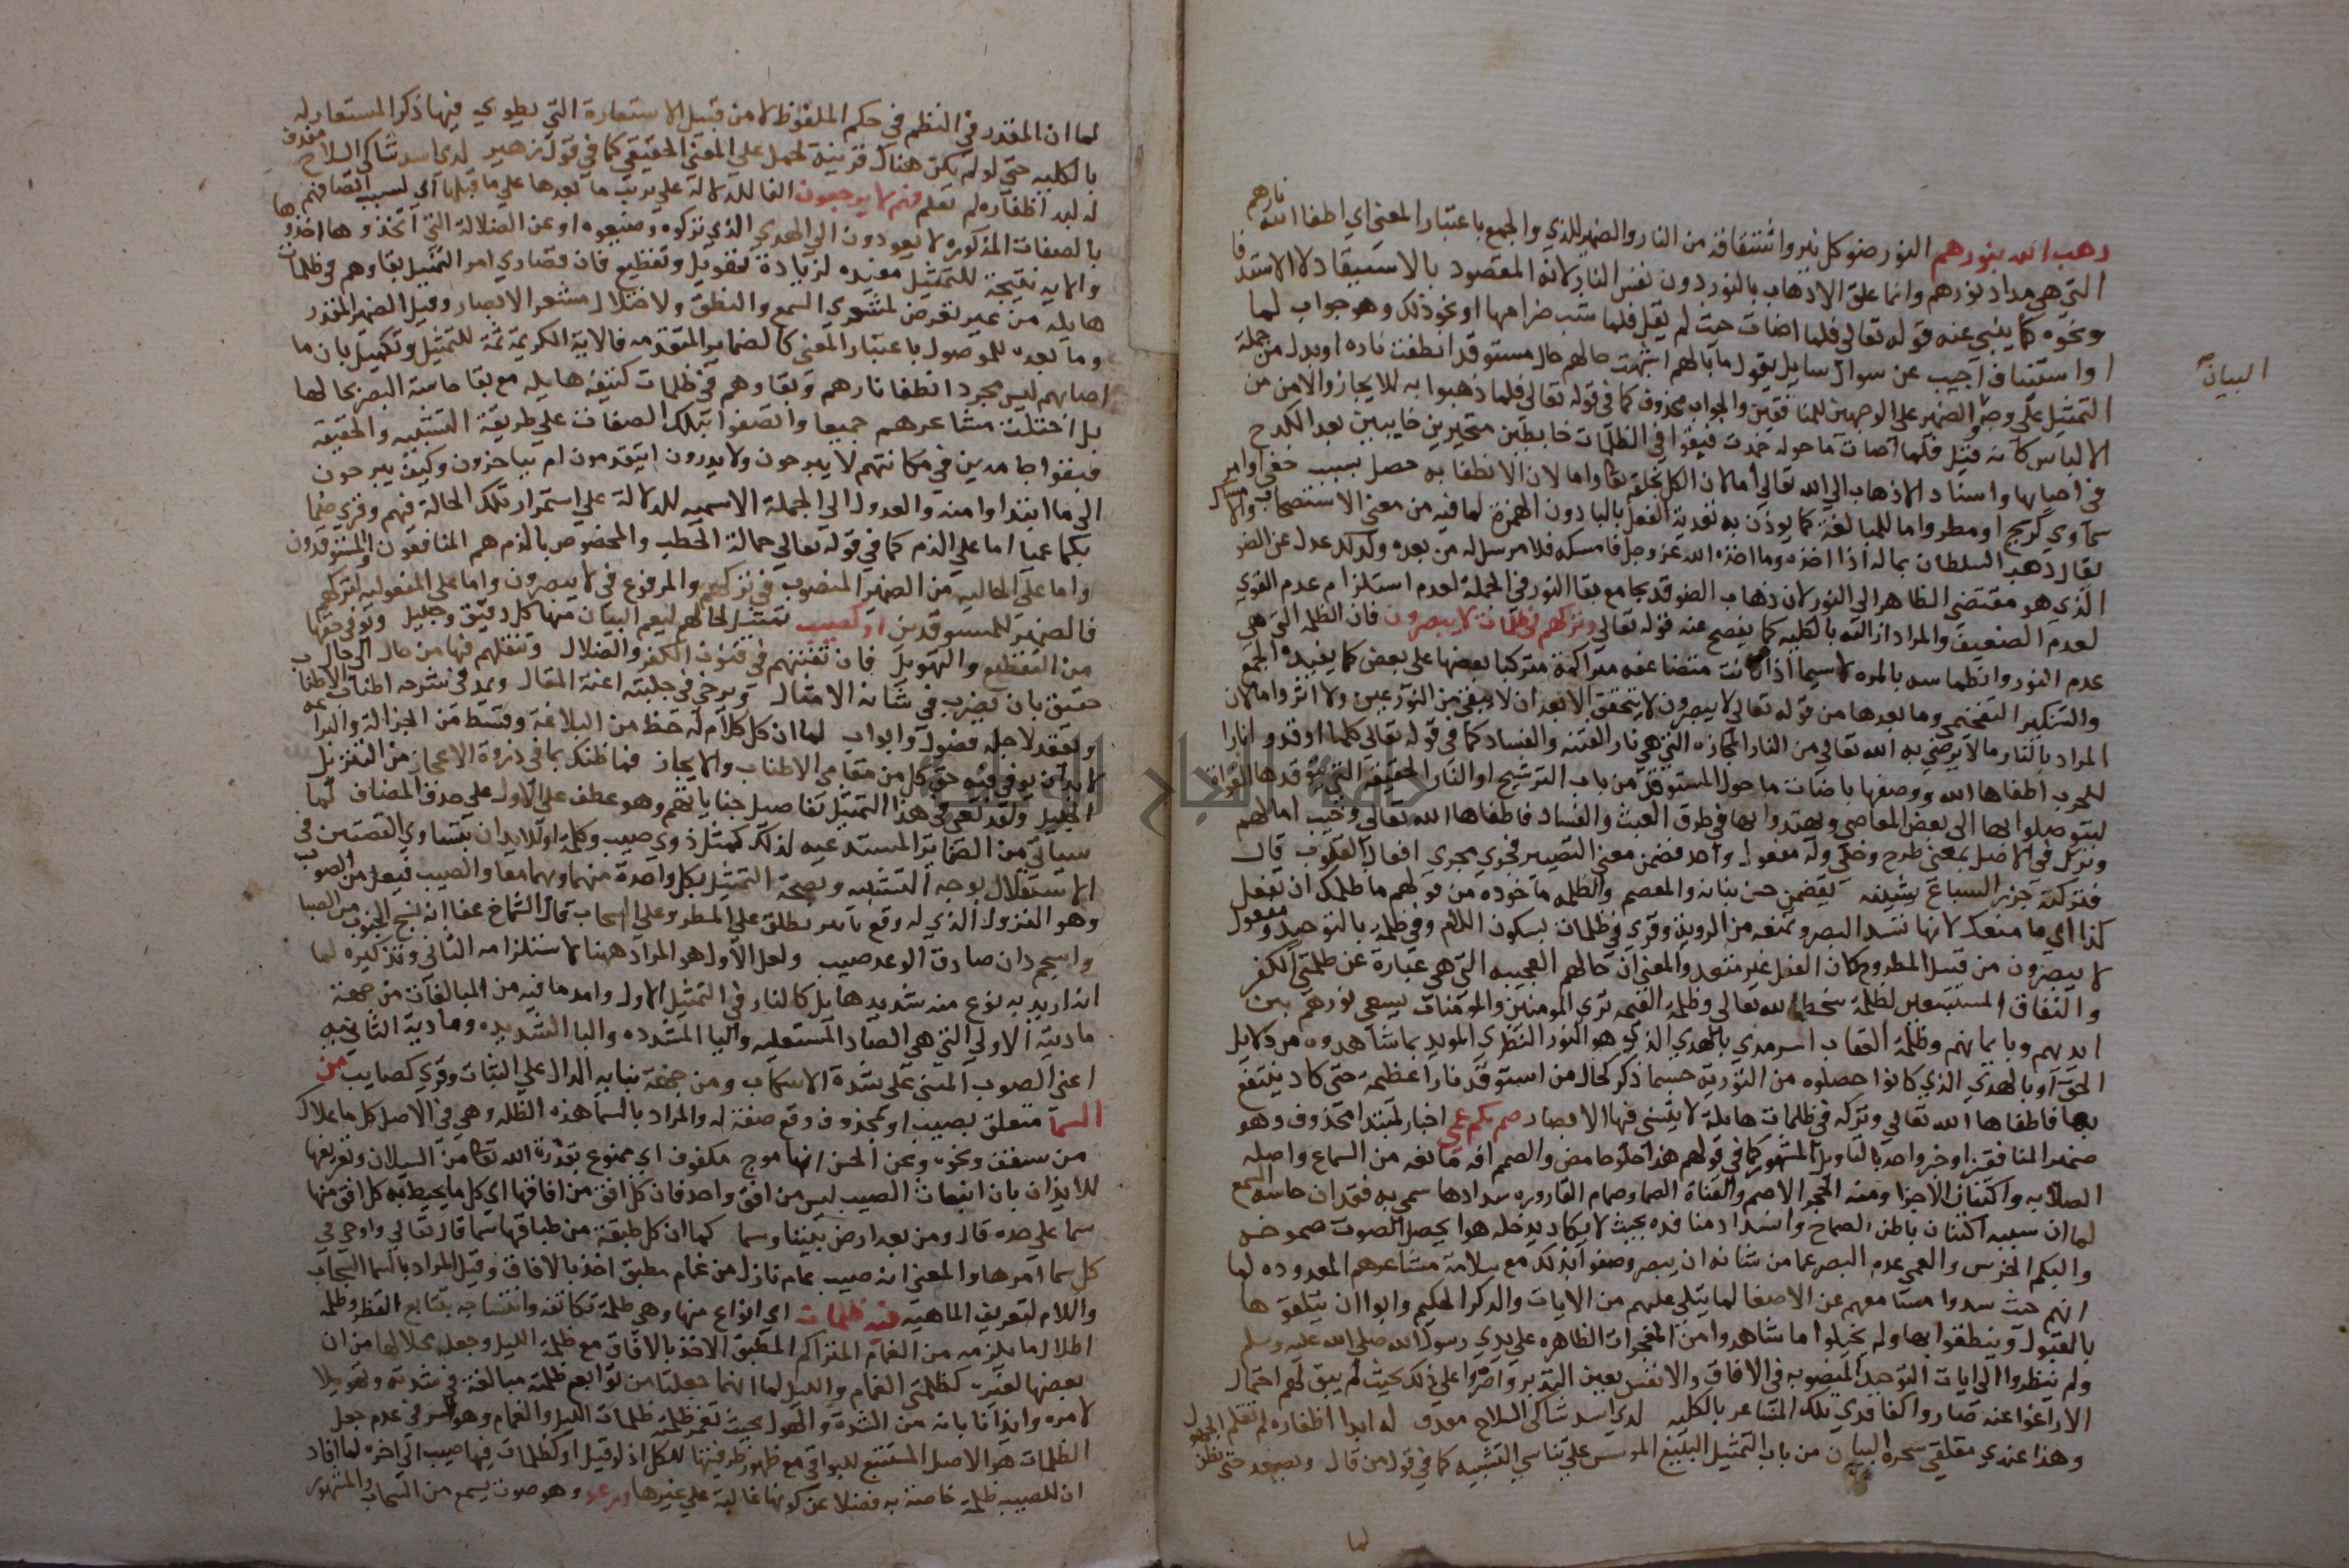 ذهب الله بنورهم النور ضو كل نير واشتقاقه من النار والضمير للذي والجمع باعتبار المعنى اي اطفا الله نارهم
التي هي مدار نورهم وانما علق الاذهاب بالنور دون نفس النار لانه المقصود بالاستيقاد لا الاستدفا
ونحوه كما ينبي عنه قوله تعالى فلما اضات حيث لم يقل فلما شب ضرامها او نحو ذلك وهو جواب لما
او استئناف اجيب عن سوال سايل يقول ما بالهم اشبهت حالهم حال مستوقد انطفت ناره او بدل من جملة
البيان
التمثيل على وجه الضمير على الوجهين للمنافقين والجواب محذوف كما في قوله تعالى فلما ذهبوا به للايجاز والامن من
الالباس كانه قيل فلما اضات ما حوله خمدت فبقوا في الظلمات خابطين متحيرين خايبين بعد الكدح
في احيايها واسناد الاذهاب الى الله تعالى اما لان الكل بخلقه تعا واما لان الانطفا به حصل بسبب خفي او امر
سماوي كريح او مطر واما للمبالغة كما يوذن به تعدية الفعل بالبا دون الهمزة لما فيه من معنى الاستصحاب والامساك
يقال ذهب السلطان بماله اذا اخذه وما اخذه الله عز وجل فامسكه فلا مرسل له من بعده ولذلك عدل عن الضو
الذي هو مقتضى الظاهر الى النور لان ذهاب الضو قد يجامع بقا النور في الجملة لعدم استلزام عدم القوي
لعدم الضعيف والمراد ازالته بالكليه كما يفصح عنه قوله تعالى وتركهم في ظلمات لا يبصرون فان الظلمه التي هي
عدم النور وانطماسه بالمره لا سيما اذا كانت متضاعفه متراكمة متركبا بعضها على بعض كما يفيده الجمع
والتنكير التفخيمي وما بعدها من قوله تعالى لا يبصرون لا يتحقق الا بعد ان لا يبقى من النور عين ولا اثر واما لان
المراد بالنار ما لا يرضى به الله تعالى من النار المجازه التي هي نار الفتنه والفساد كما في قوله تعالى كلما اوقدوا نارا
للحرب اطفاها الله ووصفها باضات ما حول المستوقد من باب الترشيح او النار الحقيقيه التي يوقدها الغواة
ليتوصلوا بها الى بعض المعاصي ويهتدوا بها في طرق العبث والفساد فاطفاها الله تعالى وخيب امالهم
وترك في الاصل بمعنى طرح وخلى وله مفعول واحد فضمن معنى التصيير فجرى مجرى افعال القلوب قال
فتركته جزر السباع ينشنه يقضمن حسن بنانه والمعصم والظلمه ماخوذه من قولهم ما ظلمك ان تفعل
كذا اي ما منعك لانها تسد البصر وتمنعه من الروية وقري في ظلمات بسكون اللام وفي ظلمة بالتوحيد ومفعول
لا يبصرون من قبيل المطروح كان الفعل غير متعد والمعنى ان حالهم العجيبه التي هي عبارة عن ظلمتي الكفر
والنفاق المستتبعين لظلمة سخط الله تعالى وظلمة القيمه ترى المومنين والمومنات يسعى نورهم بين
ايديهم وبايمانهم وظلمة العقاب السرمدي بالهدي الذي هو النور الفطري المويد بما شاهدوه من دلايل
الحق او بالهدي الذي كانوا حصلوه من التوريه حسبما ذكر كحال من استوقد نارا عظيمه حتى كاد ينتفع
بها فاطفاها الله تعالى وتركه في ظلمات هايلة لا يتسنى فيها الابصار صم بكم عمي اخبار لمبتدا محذوف وهو
ضمير المنافقين او خبر واحد بالتاويل المشهور كما في قولهم هذا حلو حامض والصمم افه مانعه من السماع واصله
الصلابه واكتناز الاجزا ومنه الحجر الاصم والقناة الصما وصمام القاروره سدادها سمي به فقدان حاسه السمع
لما ان سببه اكتناز باطن الصماخ وانسداد منافذه بحيث لا يكاد يدخله هوا يحصل الصوت بتموجه
والبكم الخرس والعمى عدم البصر عما من شانه ان يبصر وصفوا بذلك مع سلامة مشاعرهم المعدوده لما
انهم حيث سدوا مسامعهم عن الاصغا لما يتلى عليهم من الايات والذكر الحكيم وابوا ان يتلقوها
بالقبول وينطقوا بها ولم يجتلوا ما شاهدوا من المعجزات الظاهره على يدي رسول الله صلى الله عليه وسلم
ولم ينظروا الى ايات التوحيد المنصوبه في الافاق والانفس بعين التدبر واصروا على ذلك بحيث لم يبق لهم احتمال
الارعوا عنه صاروا كفاقدي تلك المشاعر بالكليه
وهذا عند مفلقي سحرة البيان من باب التمثيل البليغ الموسس على تناسي التشبيه كما في قول من قال ويصعد حتى يظن الجهول
لما
لما ان المقدر في النظم في حكم الملفوظ لا من قبيل الاستعارة التي يطوى فيها ذكر المستعار له
بالكليه حتى لو لم يكن هناك قرينة لحمل على المعنى الحقيقي كما في قول زهير لدى اسد شاكي السلاح مقذف
له لبد اظفاره لم تقلم فهم لا يرجعون الفا للدلالة على ترتب ما بعدها على ما قبلها اي بسبب اتصافهم
بالصفات المذكوره لا يعودون الى الهدي الذي تركوه وضيعوه او عن الضلالة التي اخذوها
والايه نتيجة للتمثيل مفيده لزيادة تهويل وتفظيع فان قصارى امر التمثيل بقاوهم في ظلمات
هايله من غير تعرض لمشعري السمع والنطق ولاختلال مشعر الابصار وقيل الضمير المقدر
وما بعده للموصول باعتبار المعنى كالضماير المتقدمه فالاية الكريمة تتمة للتمثيل وتكميل بان ما
اصابهم ليس مجرد انطفا نارهم وبقاوهم في ظلمات كثيفه هايله مع بقا حاسة البصر بحالها
بل اختلت مشاعرهم جميعا واتصفوا بتلك الصفات على طريقة التشبيه والحقيقه
فبقوا جامدين في مكاناتهم لا يبرحون ولا يدرون ايتقدمون ام يتاخرون وكيف يرجعون
الى ما ابتداوا منه والعدول الى الجملة الاسميه للدلالة على استمرار تلك الحالة فيهم وقري صما
بكما عميا اما على الذم كما في قوله تعالى حمالة الحطب والمخصوص بالذم هم المنافقون والمستوقدون
واما على الحاليه من الضمير المنصوب في تركهم والمرفوع في لا يبصرون واما على المفعوليه لتركهم
فالضمير للمستوقدين او كصيب تمثيل لحالهم ليعم البيان منها كل دقيق وجليل ويوفي حقها
من التفظيع والتهويل فان تفننهم في فنون الكفر والضلال وتنقلهم فيها من حال الى حال
حقيق بان يضرب في شانه الامثال ويرخى في حلبته اعنة المقال ويمد في شرحه اطناب الاطناب
ويعقد لاجله فصول وابواب لما ان كل كلام له حظ من البلاغة وقسط من الجزالة والبراعه
لا بد ان يوفى فيه حق كل من مقامي الاطناب والايجاز فما ظنك بما في ذروة الاعجاز من التنزيل
الجليل ولقد نعي في هذا التمثيل تفاصيل جناياتهم وهو عطف على الاول على حذف المضاف لما
سياتي من الضماير المستدعيه لذلك كمثل ذوي صيب وكلمة او للايذان بتساوي القصتين في
الاستقلال بوجه التشبيه وبصحة التمثيل بكل واحدة منهما وبهما معا والصيب فيعل من الصوب
وهو النزول الذي له وقع تاثير يطلق على المطر وعلى السحاب قال الشماخ عفا ايه نسج الجنوب مع الصبا
واسحم دان صادق الوعد صيب ولعل الاول هو المراد ههنا لاستلزامه الثاني وتنكيره لما
انه اريد به نوع منه شديد هايل كالنار في التمثيل الاول وامد ما فيه من المبالغات من جهة
مادته الاولى التي هي الصاد المستعليه واليا المشدده والبا الشديده ومادته الثانيه
اعني الصوب المنبي على شدة الانسكاب ومن جهة بنايه الدال على الثبات وقري كصايب من
السما متعلق بصيب او بمحذوف وقع صفة له والمراد بالسما هذه المظله وهي في الاصل كل ما علاك
من سقف ونحوه وعن الحسن انها موج مكفوف اي ممنوع بقدرة الله تعا من السيلان وتعريفها
للايذان بان انبعاث الصيب ليس من افق واحد فان كل افق من افاقها اي كل ما يحيط به كل افق منها
سما على حده قال ومن بعد ارض بيننا وسما كما ان كل طبقة من طباقها سما قال تعالى واوحى في
كل سما امرها والمعنى انه صيب عام نازل من غمام مطبق اخذ بالافاق وقيل المراد بالسما السحاب
واللام لتعريف الماهيه فيه ظلمات اي انواع منها وهي ظلمة تكاثفه وانتساجه بتتابع القطر وظلمة
اظلال ما يلزمه من الغمام المتراكم المطبق الاخذ بالافاق مع ظلمة الليل وجعله محلا لها مع ان
بعضها لغيره كظلمتي الغمام والليل لما انهما جعلتا من توابع ظلمته مبالغة في شدته وتهويلا
لامره وايذانا بانه من الشدة والهول بحيث تغمر ظلمته ظلمات الليل والغمام وهو السر في عدم جعل
الظلمات هو الاصل المستتبع للبواقي مع ظهور ظرفيتها للكل اذ لو قيل او كظلمات فيها صيب الى اخره لما افاد
ان للصيب ظلمة خاصة به فضلا عن كونها غالبة على غيرها ورعد وهو صوت يسمع من السحاب والمشهور